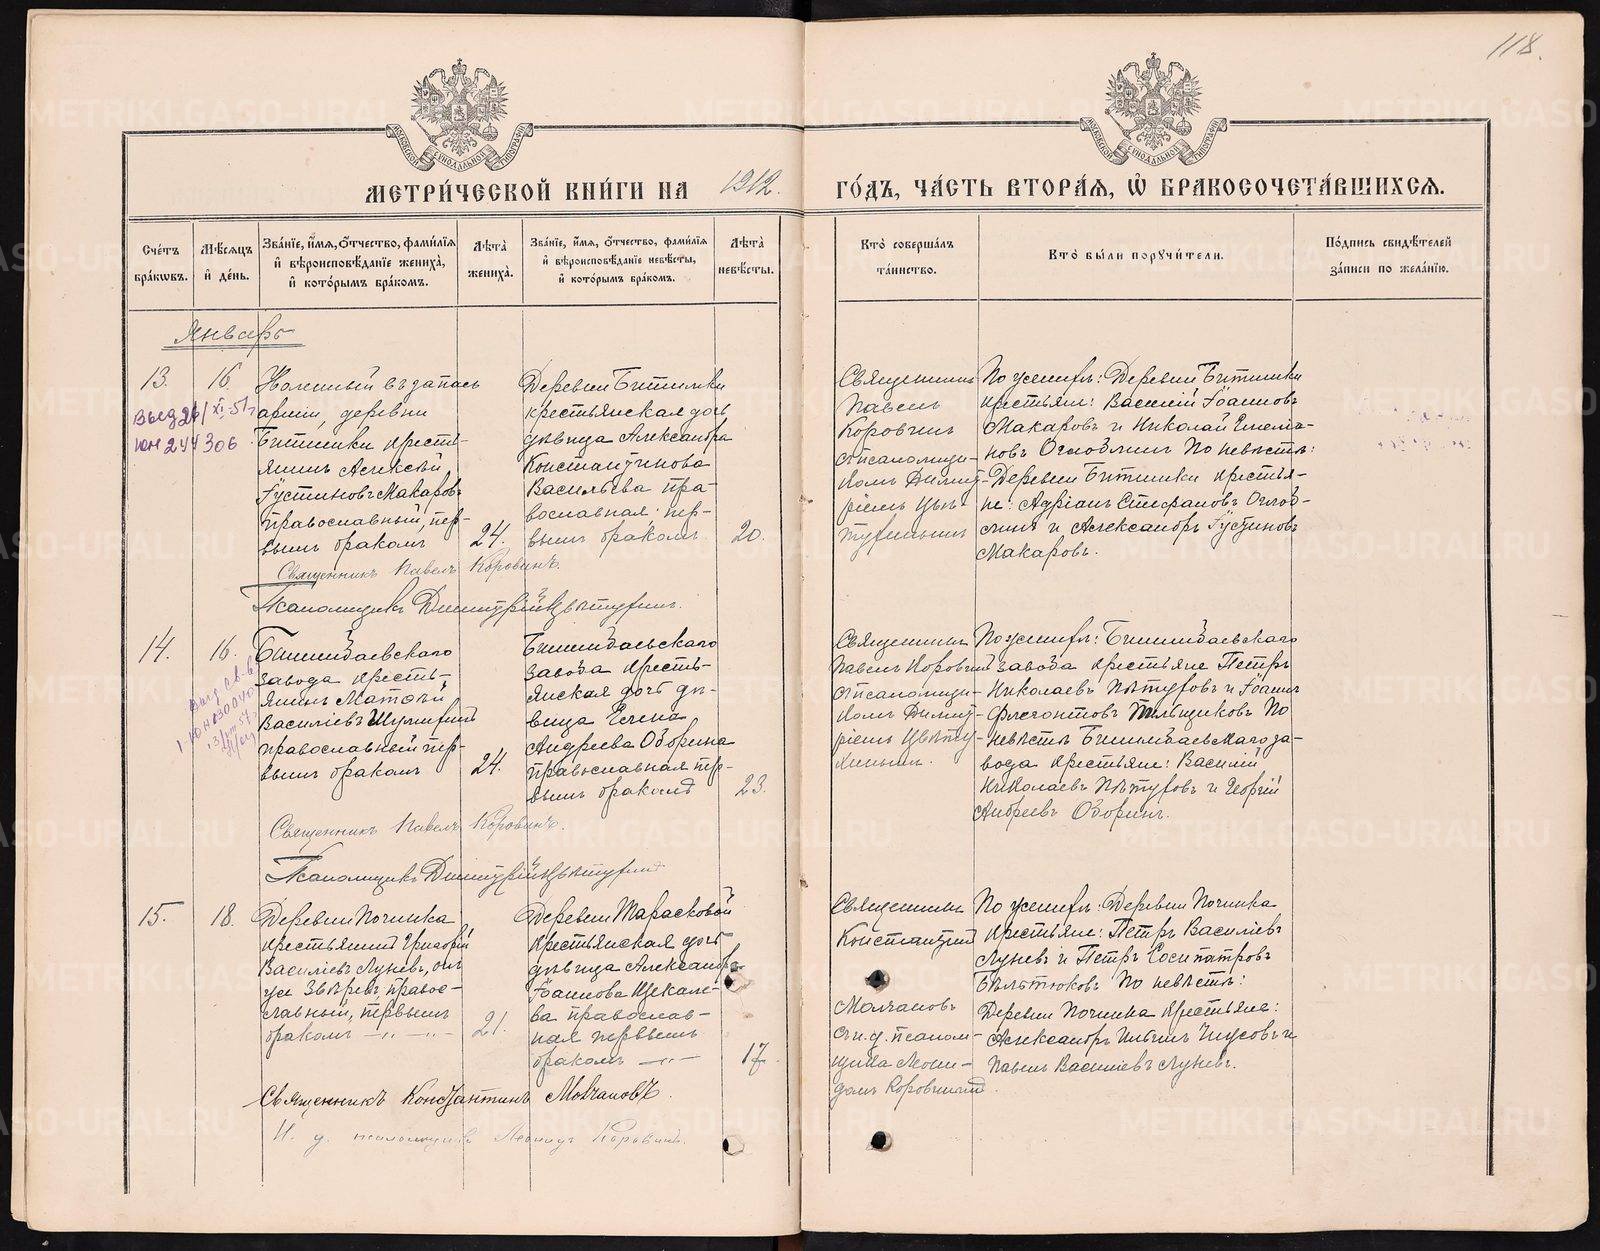 118.
МЕТРИ́ЧЕСКОЙ КНИ́ГИ НА 1912. ГО́ДЪ, ЧА́СТЬ ВТОРА́Я, Ѿ БРАКОСОЧЕТА́ВШИХСЯ.
Сче́тъ бра́ковъ.
Мѣ́сяцъ и҆ де́нь.
Зва́нїе, и҆́мя, ѻ҆́тчество, фами́лїя
и҆ вѣроисповѣ́данїе жениха̀,
и҆ кото́рымъ бра́комъ.
Лѣта̀ жениха̀.
Зва́нїе, и҆́мя, ѻ҆́тчество, фами́лїя
и҆ вѣроисповѣ́данїе невѣ́сты,
и҆ кото́рымъ бра́комъ.
Лѣта̀ невѣ́сты.
Кто̀ соверша́лъ
та́инство.
Кто̀ бы́ли порꙋчи́тели.
По́дпись свидѣ́телей
за́писи по жела́нїю.
Январь
13.
16.
Выез 26/XI-51г
244306
Уволенный въ запасъ
арміи, деревни
Битимки крестья-
нинъ Алексѣй
Іустиновъ Макаровъ
православный, пер-
вымъ бракомъ
24.
Деревни Битимки
крестьянская дочь
дѣвица Александра
Константинова
Васильева пра-
вославная пер-
вымъ бракомъ
20.
Священникъ
Павелъ
Коровинъ
съ псаломщи-
комъ Димит-
ріемъ Цвѣ-
тухинымъ
По женихѣ: Деревни Битимки
крестьяне: Василій Іоанновъ
Макаровъ и Николай
Оглоблинъ По невѣстѣ:
Деревни Битимки крестья-
не: Адріанъ Стефановъ Оглоб-
линъ и Александръ Іустиновъ
Макаровъ.
Священникъ Павелъ Коровинъ.
Псаломщикъ Димитрій Цвѣтухинъ.
14.
16.
Билимбаевскаго
завода кресть-
янинъ Матвѣй
Василіевъ
православный пер-
вымъ бракомъ
24.
Билимбаевскаго
завода кресть-
янская дочь дѣ-
вица Елена
Андреева Озорнина
православная пер-
вымъ бракомъ
23.
Священникъ
Павелъ Коровинъ
съ псаломщи-
комъ Димит-
ріемъ Цвѣту-
хинымъ.
По женихѣ: Билимбаевскаго
завода крестьяне Петръ
Николаевъ Пѣтуховъ и Іоаннъ
По
невѣстѣ Билимбаевскаго за-
вода крестьяне: Василій
Николаевъ Пѣтуховъ и Георгій
Андреевъ Озорнинъ.
Священникъ Павелъ Коровинъ.
Псаломщикъ Димитрій Цвѣтухинъ
15.
18.
Деревни Починка
крестьянинъ Григорій
Василіевъ Луневъ, онъ
же Звѣревъ правос-
лавный, первымъ
бракомъ
21.
Деревни Тарасковой
крестьянская дочь
дѣвица Александра
Іоаннова Щекале-
ва православ-
ная первымъ
бракомъ
17.
Священникъ
Константинъ
Молчановъ
съ и. д. псалом-
щика Леони-
домъ Коровинымъ.
По женихѣ: Деревни Починка
крестьяне: Петръ Василіевъ
Луневъ и Петръ Евсипатровъ
Бѣлтюковъ По невѣстѣ:
Деревни Починка крестьяне:
Александръ и
Павелъ Василіевъ Луневъ.
Священникъ Константинъ Молчановъ.
И. д. псаломщика Леонидъ Коровинъ.
METRIKI.GASO-URAL.RU